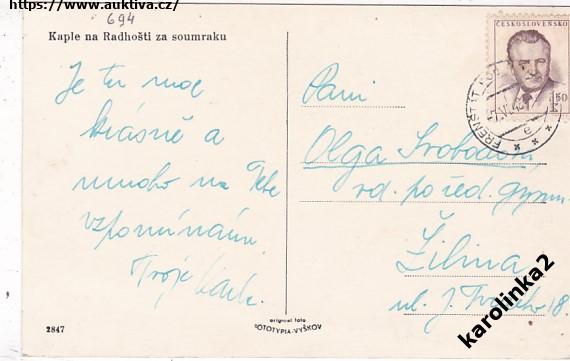 https://www.auktiva.cz/
694
Kaple na Radhošti za soumraku
Je tu moc
krásně a
mnoho na Tebe
vzpomínám.
Tvoje
2847
ČESKOSLOVENSKO
1'50
Kčs
FRENŠTÁT
e
Paní
Olga Svobodová
Žilina
ul. J. 18.
original foto
FOTOTYPIA-VYŠKOV
karolinka2